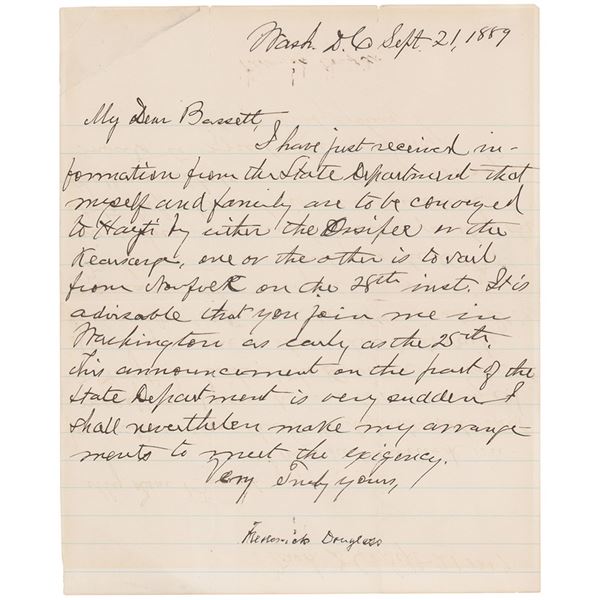 Wash. D.C Sept. 21, 1889
My Dear Bassett,
I have just received in-
formation from the State Department that
myself and family are to be conveyed
to Hayti by either the Ossipee or the
Kearsarge, one or the other is to sail
from Norfolk on the 28th inst. It is
advisable that you join me in
Washington as early as the 25th.
This announcement on the part of the
State Department is very sudden I
shall nevertheless make my arrange
ments to meet the exigency.
Very Truly yours,
Frederick Douglass